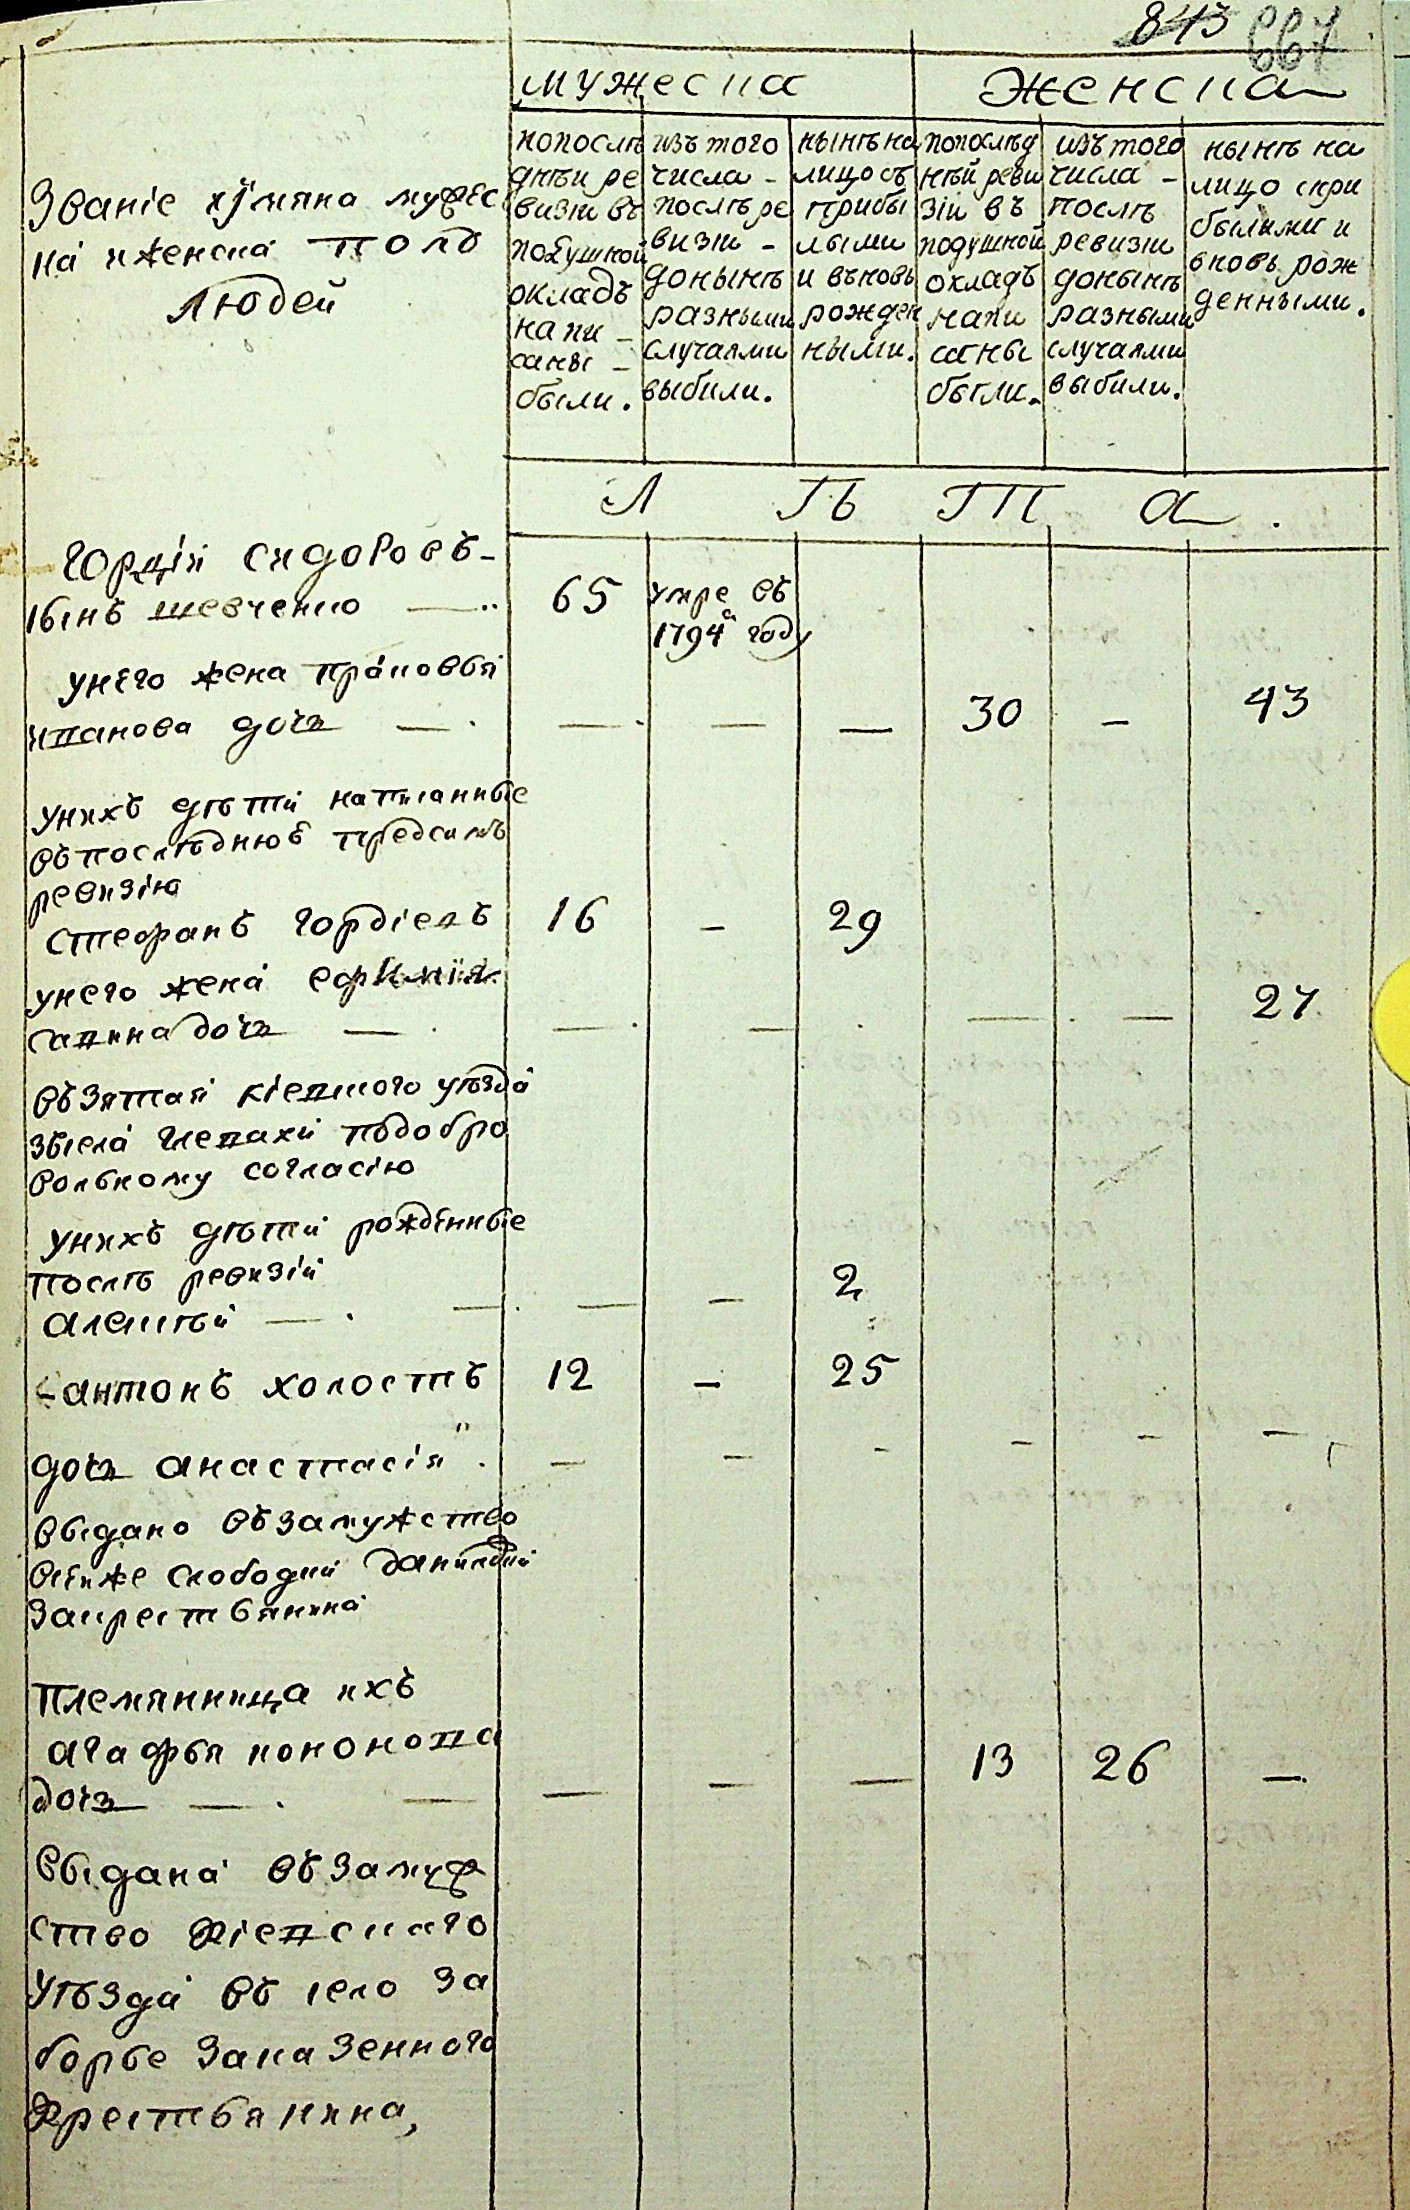 843 667
мужеска
женска
Званіе и имяна мужес
ка и женска полѡ
людей
попослѣ
днѣи ре
визіи въ
подушной
окладъ
напи -
саны -
были.
изъ того
числа -
послѣ ре
визіи -
донынѣ
разными
случаями
выбили.
нынѣ на
лицо съ
прибы
лыми
и въновь
рожден
ными.
попослѣд
нѣй реви
зіи въ
подушной
окладъ
напи
саны
были.
изъ того
числа -
послѣ
ревизіи
донынѣ
разными
случаями
выбили.
нынѣ на
лицо спри
былыми и
вновь рож
денными.
Л Ѣ Т А .
Гордій Сидоровъ -
сынъ шевченко — 65 умре въ
1794 году
унего жена прасковья
степанова дочь — — — — 30 — 43
унихъ дѣти написанные
въпослѣднюю предсимъ
ревизію
стефанъ гордіевъ 16 — 29
унего жена ефимія
савина дочь — — — — — 27
въятая кіевского уѣзда
зъсела глевахи подобро
вольному согласію
унихъ дѣти рожденные
послѣ ревизіи
алексѣй — — — — 2
антонъ холостъ 12 — 25
дочь анастасія — — — — — —
выдано въ замужство
всейже слободки
закрестьянина
племянница ихъ
агафья кононова
дочь — — — — — 13 26 —
выдана въ замуж
ство кіевскаго
уѣзда въ село за
борье заказенного
крестьянина,